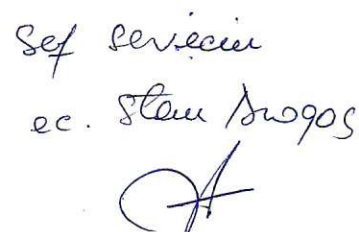 Șef serviciu
ec. Stan Dragoș